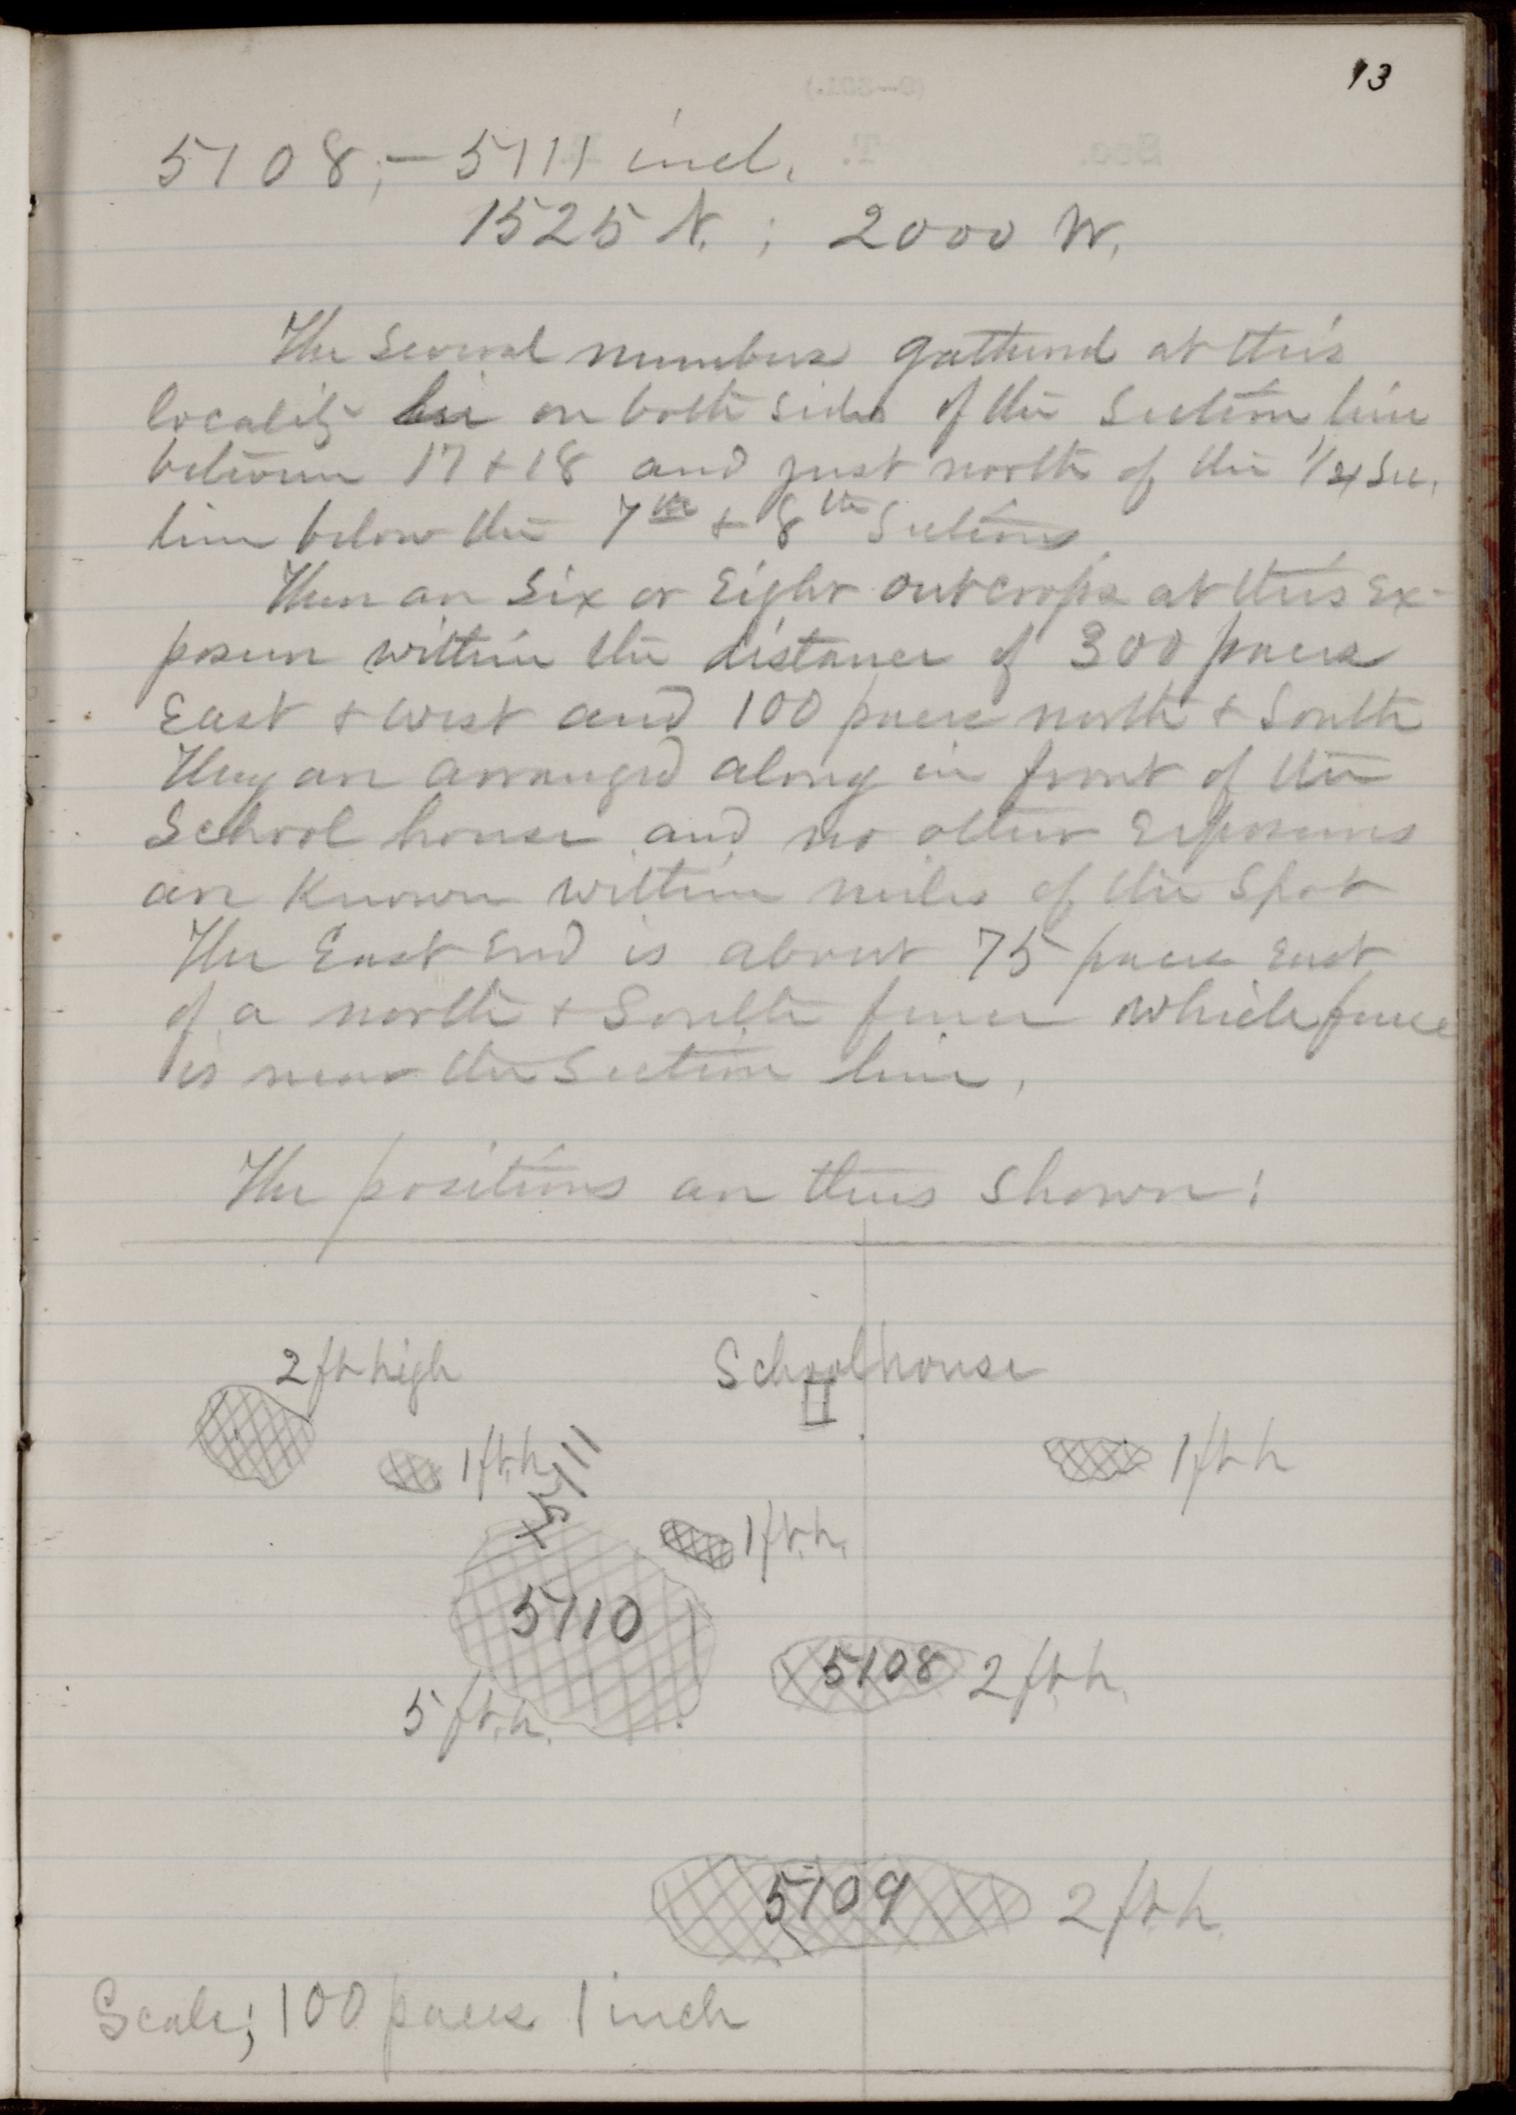 13
5108,— 5111 incl.
1525 N. ; 2000 W.
The several numbers gathered at this
locality lie on both sides of the Section line
between 17 + 18 and just north of the 1/4 Sec.
line below the 7th + 8th Sections
There are Six or Eight outcrops at this Ex-
posure within the distance of 300 paces
East + West and 100 paces north + South
They are arranged along in front of the
School house and no other Exposures
are Known within miles of the Spot
The East End is about 75 paces East
of a north + South fence which fence
is near the Section line.
The positions are thus shown:
2 ft high
Schoolhouse
1 ft. h
5111
1 ft h
1 ft. h.
5110
5108 2 ft. h.
5 ft. h.
5109 2 ft. h.
Scale; 100 paces 1 inch